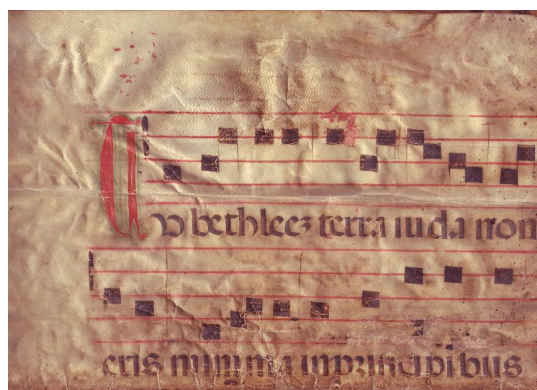 Tu bethleez terra iuda non
eris minima in principibus